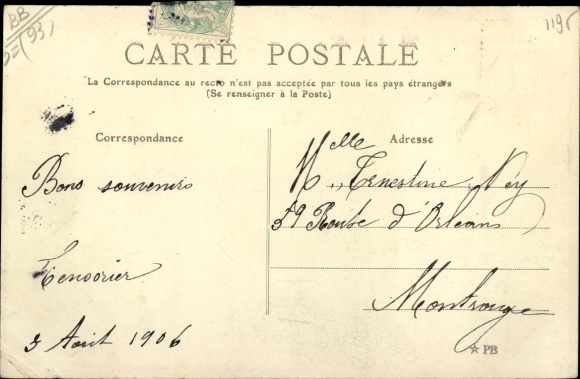 BB
(93)
1195
CARTE POSTALE
La Correspondance au recto n'est pas acceptée par tous les pays étrangers
(Se renseigner à la Poste)
Correspondance
Bons souvenirs
3 Août 1906
Adresse
Mlle Ernestine Ney
59 Route d'Orléans
Montrouge
PB